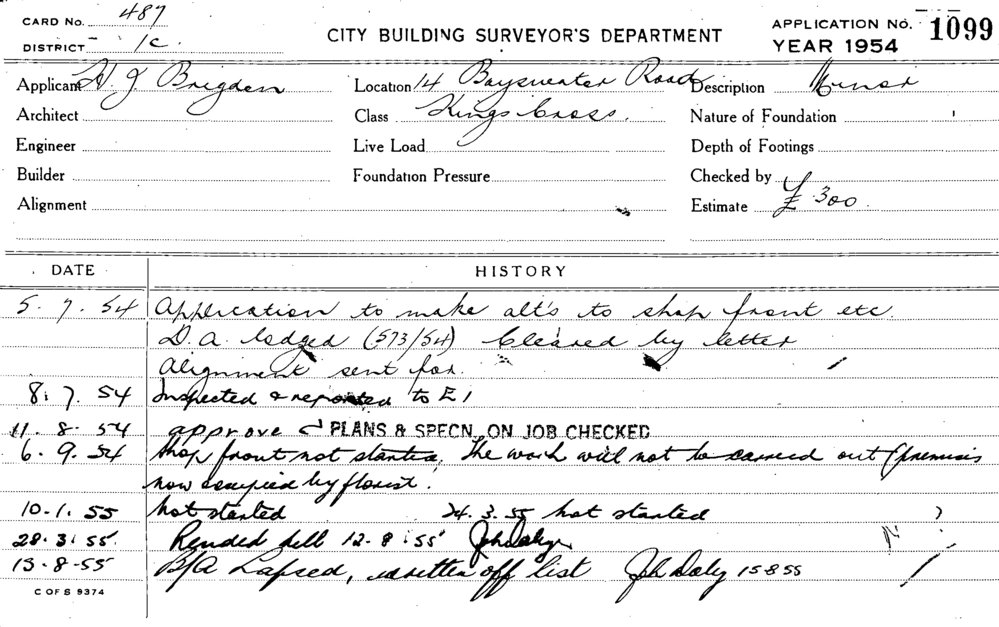 CARD No. 487
DISTRICT 1c.
CITY BUILDING SURVEYOR'S DEPARTMENT
APPLICATION No. 1099
YEAR 1954
Applicant H. J Brigden Location 14 Bayswater Road Description Minor
Architect Class Kings Cross. Nature of Foundation
Engineer Live Load Depth of Footings
Builder Foundation Pressure Checked by
Alignment Estimate £ 300
DATE HISTORY
5. 7. 54 Application to make alt's to shop front etc
D. A. lodged (573/54) Cleared by letter
Alignment sent for.
8. 7. 54 Inspected & reported to E1
11. 8. 54 approve PLANS & SPECN. ON JOB CHECKED
6. 9. 54 Shop front not started. The work will not be carried out (premises
now occupied by florist.
10. 1. 55 not started 24. 3. 55 not started ?
28. 3. 55. 12. 8. 55 Jph Daly N !
13-8-55 B/A Lapsed, written off list Jph Daly 15 8 55
C OF S 9374